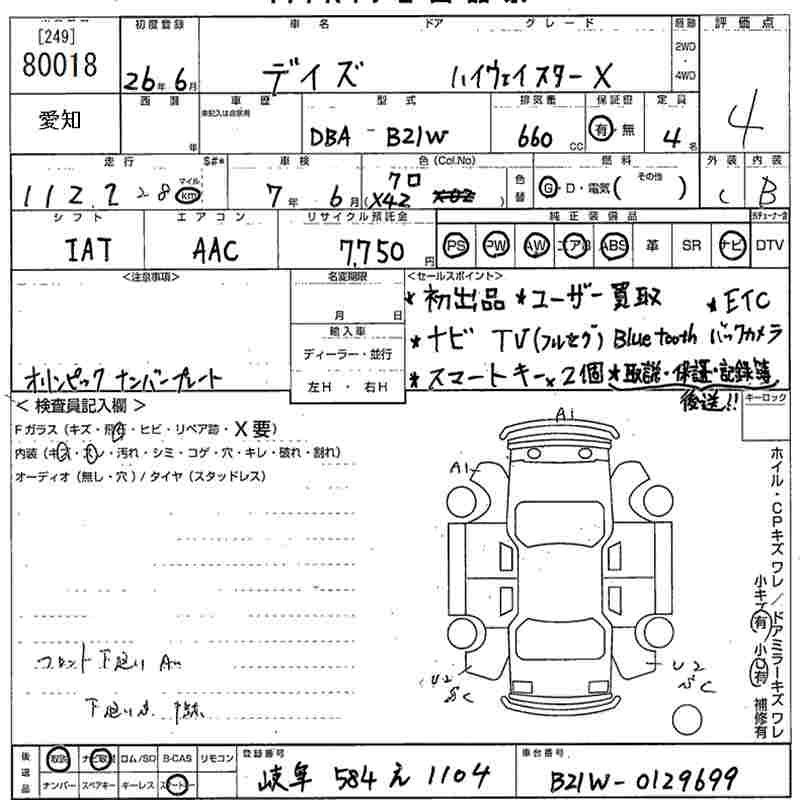 [249]
80018
愛知
初度登録 車名 ドア グレード 駆動 評価点
26年6月 デイズ ハイウェイスターX 2WD 4WD
西暦 年 車歴 未記入は自家用 型式 排気量 保証書 定員
DBA-B21W 660cc 有・無 4名 4
走行 S#* 車検 色(Col.No) 燃料 外装 内装
112,228 マイル km 7年6月 クロ (X42 ) 色替 G・D・電気( その他 ) C B
シフト エアコン リサイクル預託金 純正装備品
IAT AAC 7,750円 PS PW AW エアB ABS 革 SR ナビ DTV
<注意事項> 名変期限 <セールスポイント>
月 日
輸入車
ディーラー・並行
左H ・ 右H
オリンピック ナンバープレート
★初出品 ★ユーザー買取 ★ETC
★ナビ TV(フルセグ) Bluetooth バックカメラ
★スマートキー×2個 ★取説・保証・記録簿
後送!!
<検査員記入欄> キーロック
Fガラス(キズ・飛石・ヒビ・リペア跡・X要)
内装(キズ・スレ・汚れ・シミ・コゲ・穴・キレ・破れ・割れ)
オーディオ(無し・穴)/タイヤ(スタッドレス)
フロント下廻り A
A1
A1
U2
U2
ホイル・CPキズ ワレ/ドアミラーキズ ワレ
小キズ有 小凹有 補修有
後送品 取説 ナビ取説 ロム/SD B-CAS リモコン
ナンバー スペアキー キーレス スマートキー
登録番号 車台番号
岐阜 584 え 1104 B21W-0129699